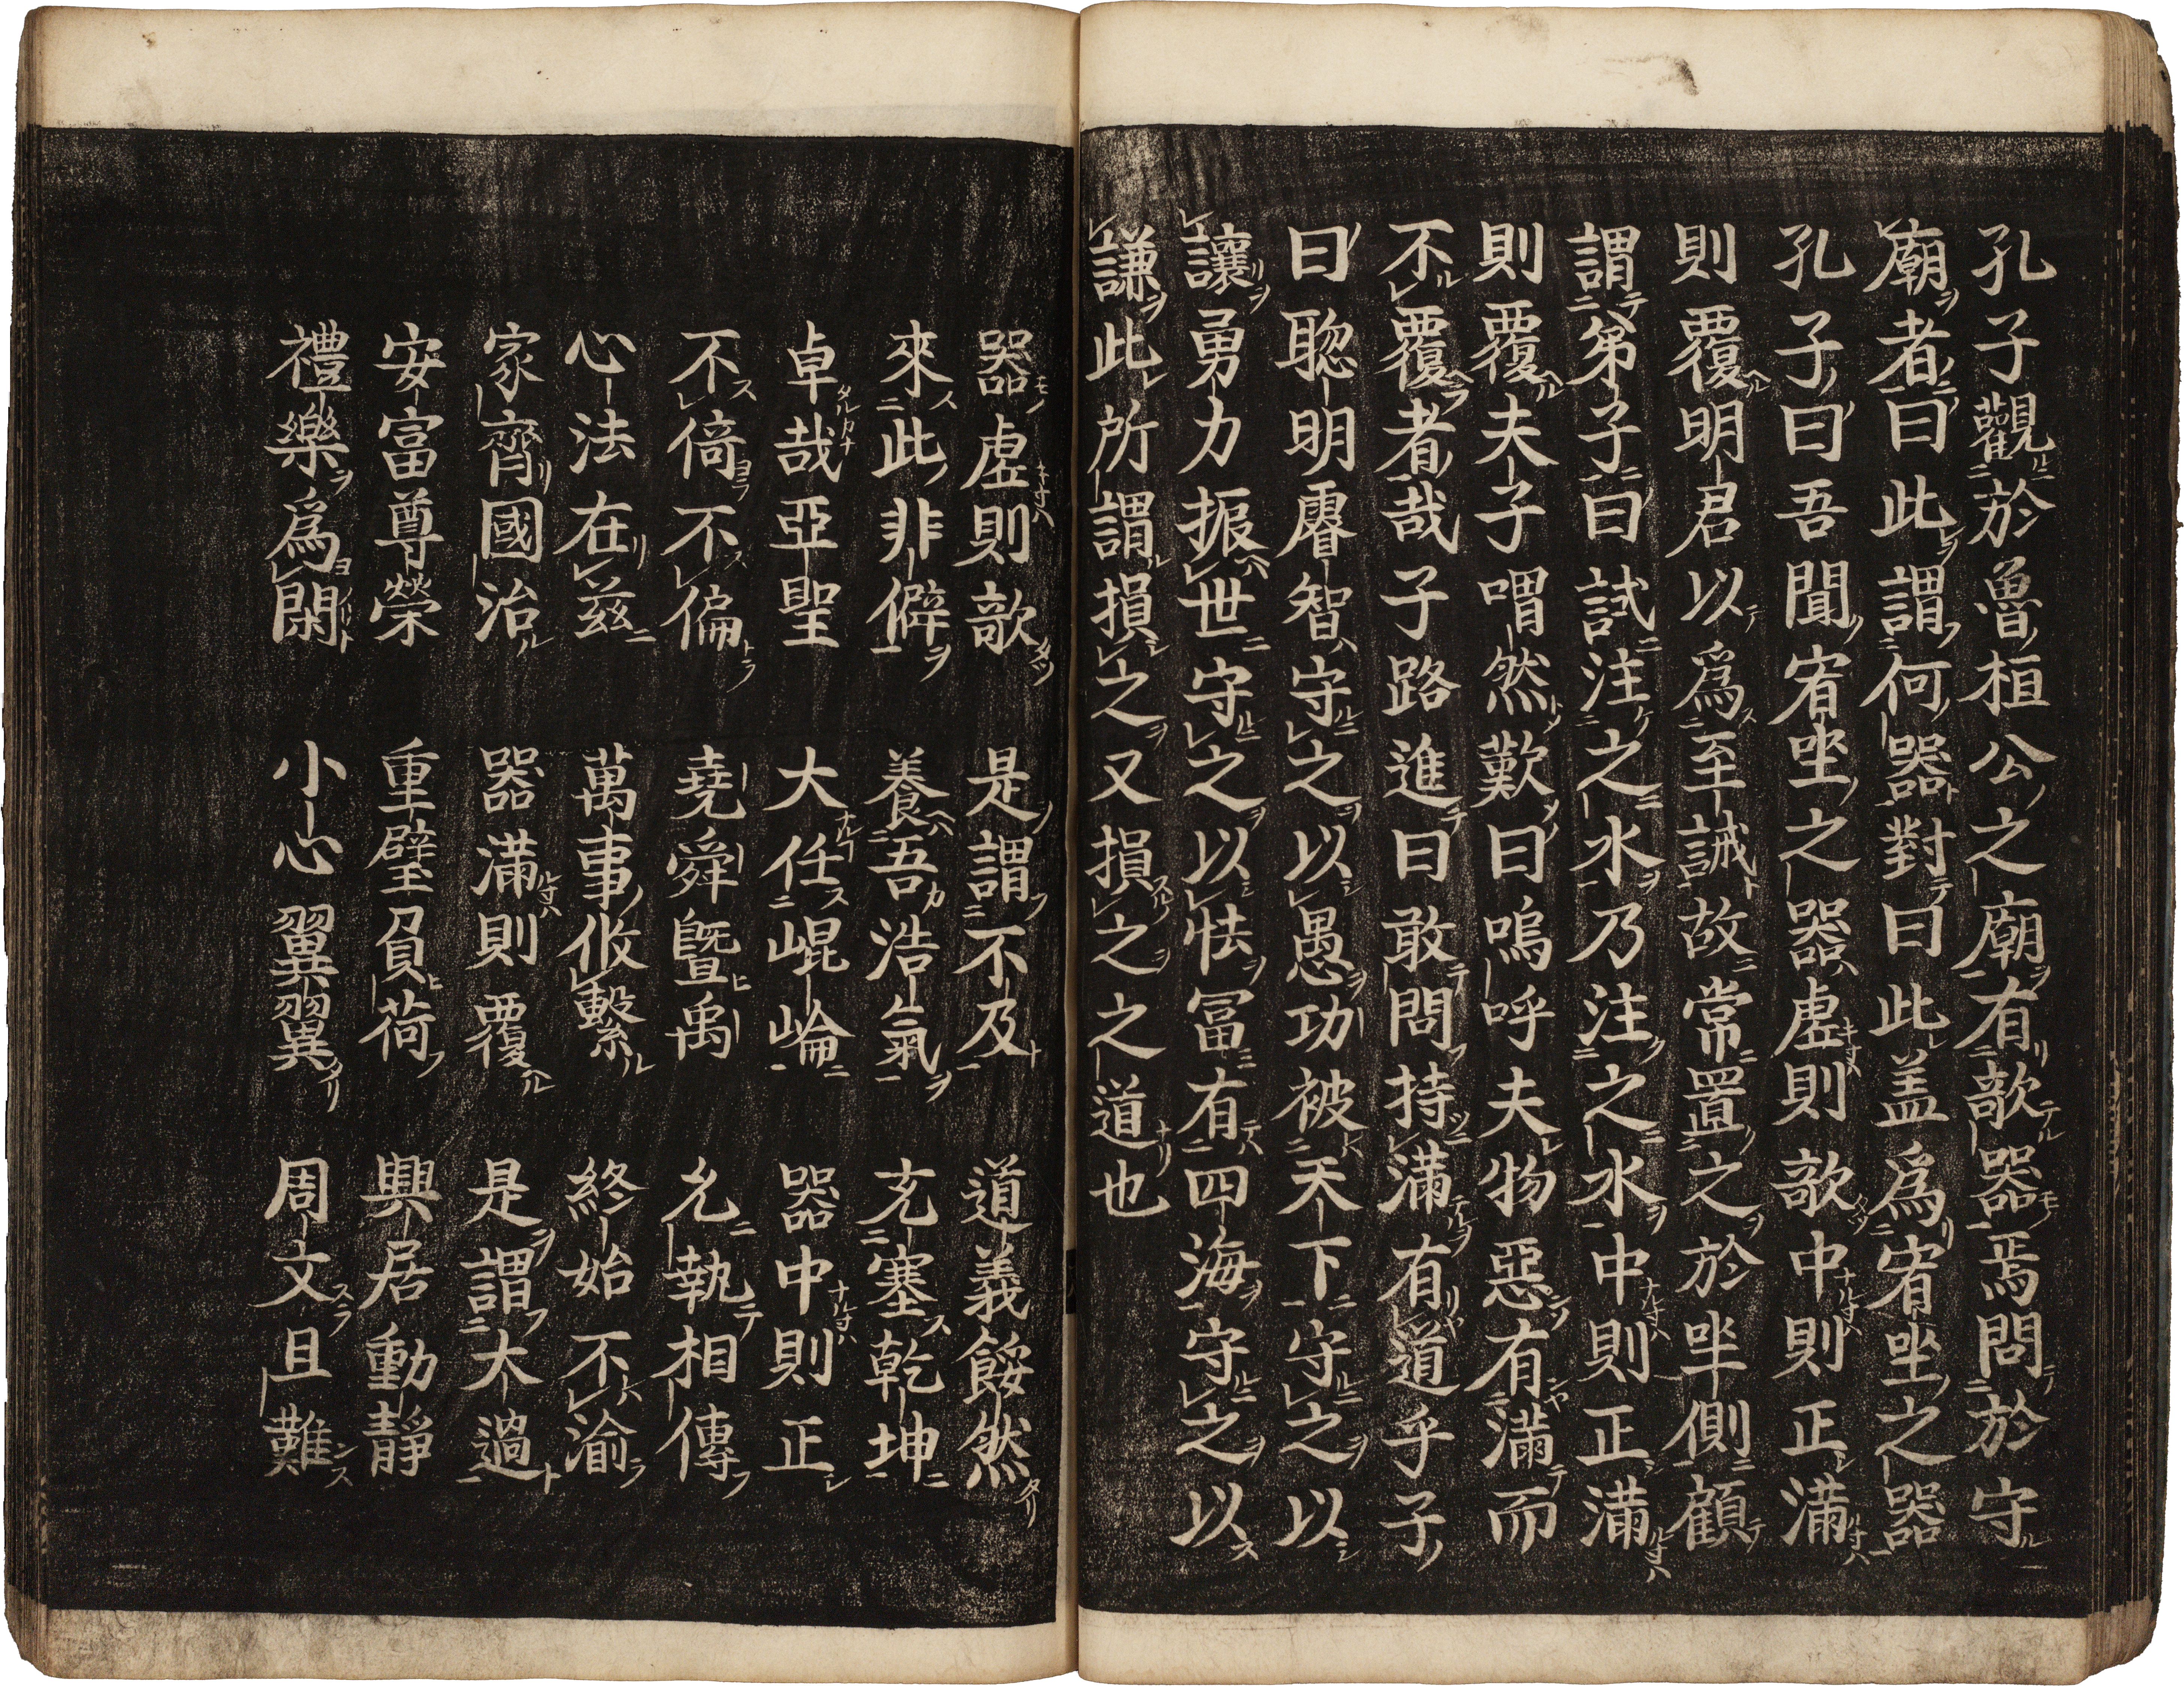 孔子觀於魯桓公之廟有欹器焉問於守
廟者曰此謂何器對曰此盖爲宥坐之器
孔子曰吾聞宥坐之器虛則欹中則正滿
則覆明君以爲至誡故常置之於坐側顧
謂弟子曰試注之水乃注之水中則正滿
則覆夫子喟然歎曰嗚呼夫物惡有滿而
不覆者哉子路進曰敢問持滿有道乎子
曰聦明睿智守之以愚功被天下守之以
讓勇力振世守之以怯冨有四海守之以
謙此所謂損之又損之之道也
器虛則欹 是謂不及 道義餒然
來此非僻 養吾浩氣 充塞乾坤
卓哉亞聖 大任崐崘 器中則正
不倚不偏 堯舜曁禹 允執相傳
心法在茲 萬事攸繫 終始不渝
家齊國治 器滿則覆 是謂大過
安富尊榮 重璧負荷 興居動靜
禮樂爲閑 小心翼翼 周文且難